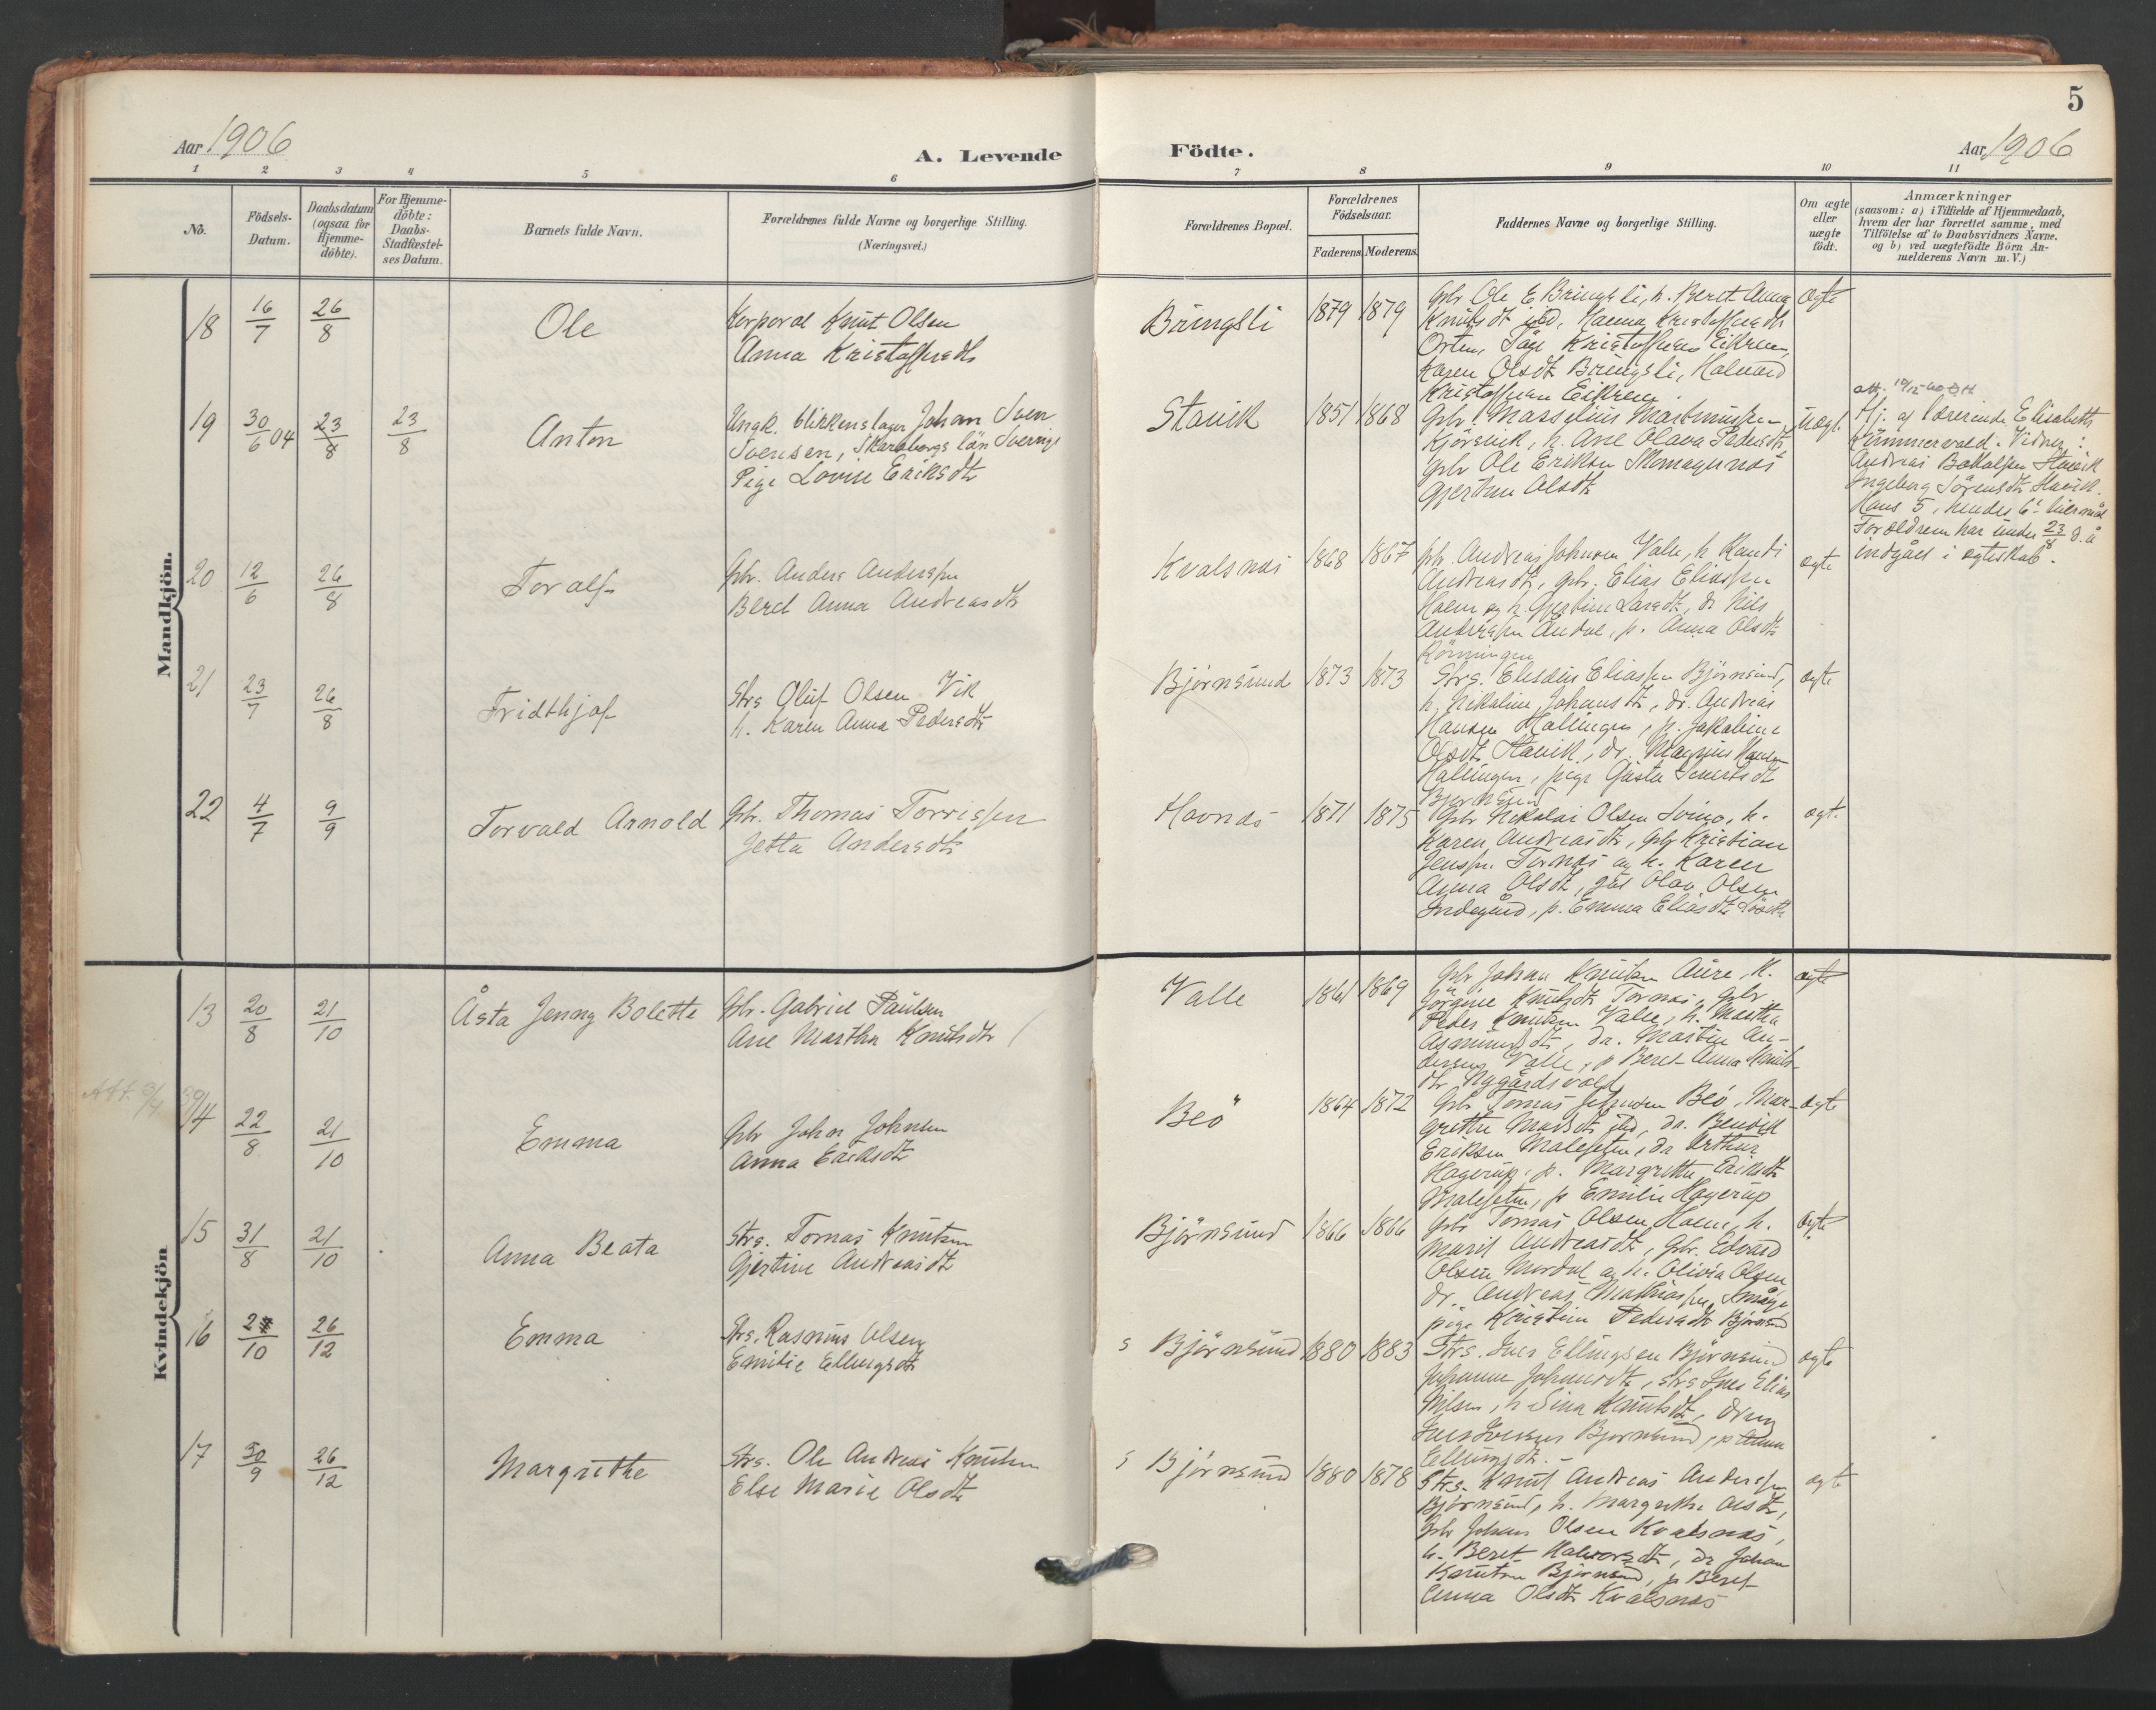 5
Aar 1906
A. Levende Födte.
Aar 1906
1 2 3 4 5 6 7 8 9 10 11
No.
Födsels-
Datum.
Daabsdatum
(ogsaa for
Hjemme-
döbte).
For Hjemme-
döbte:
Daabs-
Stadfæstel-
ses Datum.
Barnets fulde Navn.
Forældrenes fulde Navne og borgerlige Stilling.
(Næringsvei.)
Forældrenes Bopæl.
Forældrenes
Födselsaar.
Faderens. Moderens.
Faddernes Navne og borgerlige Stilling.
Om ægte
eller
uægte
födt.
Anmærkninger
(saasom: a) i Tilfælde af Hjemmedaab,
hvem der har forrettet samme, med
Tilföielse af to Daabsvidners Navne,
og b) ved uægtefödte Börn An-
melderens Navn m. V.)
Mandkjön.
18 16/7 26/8 Ole
Korporal Knut Olsen
Anna Kristoffersdtr
Bringsli 1879 1879
Gbr Ole E Bringsli, h. Beret Anna
Knutsdt ibd, Hanna Kristoffersdtr
Orten, Kristoffersen Eikrem,
Karen Olsdt Bringsli, Halvard
Kristoffersen Eikrem
ægte
19 30/6 04 23/8 23/8 Anton
Ungk. blikkenslager Johan Sven
Svensen, Skaraborgs län Sverige
Pige Lovise Eriksdtr
Stavik 1851 1868
Gbr. Marselius Martinussen
Kjörsvik, h. Ane Olava Pedersdtr
Gbr Ole Eriksen
Gjertine Olsdtr
uægt.
Hj. af lærerinde Elisabeth
Kämmervald. Vidner:
Andreas Stavik
Ingeborg Sörensdtr Stavik.
Hans 5, hendes 6' leiermål
Forældrene har under 23/8 d. å
indgået i ægteskab.
20 12/6 26/8 Toralf
Gbr. Anders Anderssen
Beret Anna Andreasdtr
Kvalsnæs 1868 1867
Gbr. Andreas Johnsen Valle, h Randi
Andreasdtr, gbr. Elias Eliassen
Malen og h. Gjertine Larsdtr, dr Nils
Anderssen Andal, p. Anna Olsdtr
Rönningen
ægte
21 23/7 26/8 Fridthjof
Strs Oluf Olsen Vik
h. Karen Anna Pedersdtr
Björnsund 1873 1873
Strs. Elisæus Eliassen Björnsund,
h. Nikoline Johansdtr, dr. Andreas
Hansen Hallingen, p. Jakobine
Olsdtr Stavik, dr. Magnus Hansen
Hallingen, pige Gusta
Björnsund
ægte
22 4/7 9/9 Torvald Arnold
Gbr. Thomas Torrissen
Jetta Andersdtr
Havnæs 1871 1875
Gbr Nikolai Olsen Svinø, h.
Karen Andreasdtr, gbr Kristian
Jenssen Tornæs og h. Karen
Anna Olsdt, gås Olav Olsen
Indegård, p. Emma Eliasdtr
ægt.
Kvindekjön
13 20/8 21/10 Åsta Jenny Bolette
Gbr. Gabriel Paulsen
Ane Martha Knutsdtr
Valle 1861 1869
Gbr Johan Knutsen Aure, h.
Jörgine Knutsdtr Tornæs, gbr
Peder Knutsen Valle, h. Martha
Asmundsdtr, dr. Martin An-
dersen Valle, p Beret Anna Knuts-
dtr Nygårdsvold
ægte
14 22/8 21/10 Emma
Gbr John Johnsen
Anna Eriksdtr
Beö 1864 1872
Gbr Tomas Johnsen Beö, Mar-
grethe Madsdtr ibd, dr. Bendik
Eriksen Malesetra, dr Arthur
Hagerup, p. Margrethe Eriksdtr
Malesetra, p Emilie Hagerup
ægte
15 31/8 21/10 Anna Beata
Strs. Tomas Knutsen
Gjertine Andreasdtr
Björnsund 1866 1866
Gbr Tomas Olsen Malen, h.
Marit Andreasdtr, gbr. Edvard
Olsen Mordal og h. Olivia Olsen
dr. Andreas Mathiassen Småge
pige Kristine Pedersdtr Björnsund
ægte
16 10 26/12 Emma
Strs. Rasmus Olsen
Emilie Ellingsdtr
s Björnsund 1880 1883
Strs. Iver Ellingsen Björnsund
Johanne Johansdtr, strs Iver Elias
Nilsen, h Sina Knutsdtr, dreng
Iver Iversen Björnsund, p Anna
Ellingsdtr. -
ægte
17 30/9 26/12 Margrethe
Strs. Ole Andreas Knutsen
Else Marie Olsdtr
s Björnsund 1880 1878
Strs. Knut Andreas Anderssen
Björnsund, h. Margrethe Olsdtr,
gbr Johan Olsen Kvalsnæs,
h. Beret Halvorsdtr, dr Johan
Knutsen Björnsund, p Beret
Anna Olsdtr Kvalsnæs
ægte